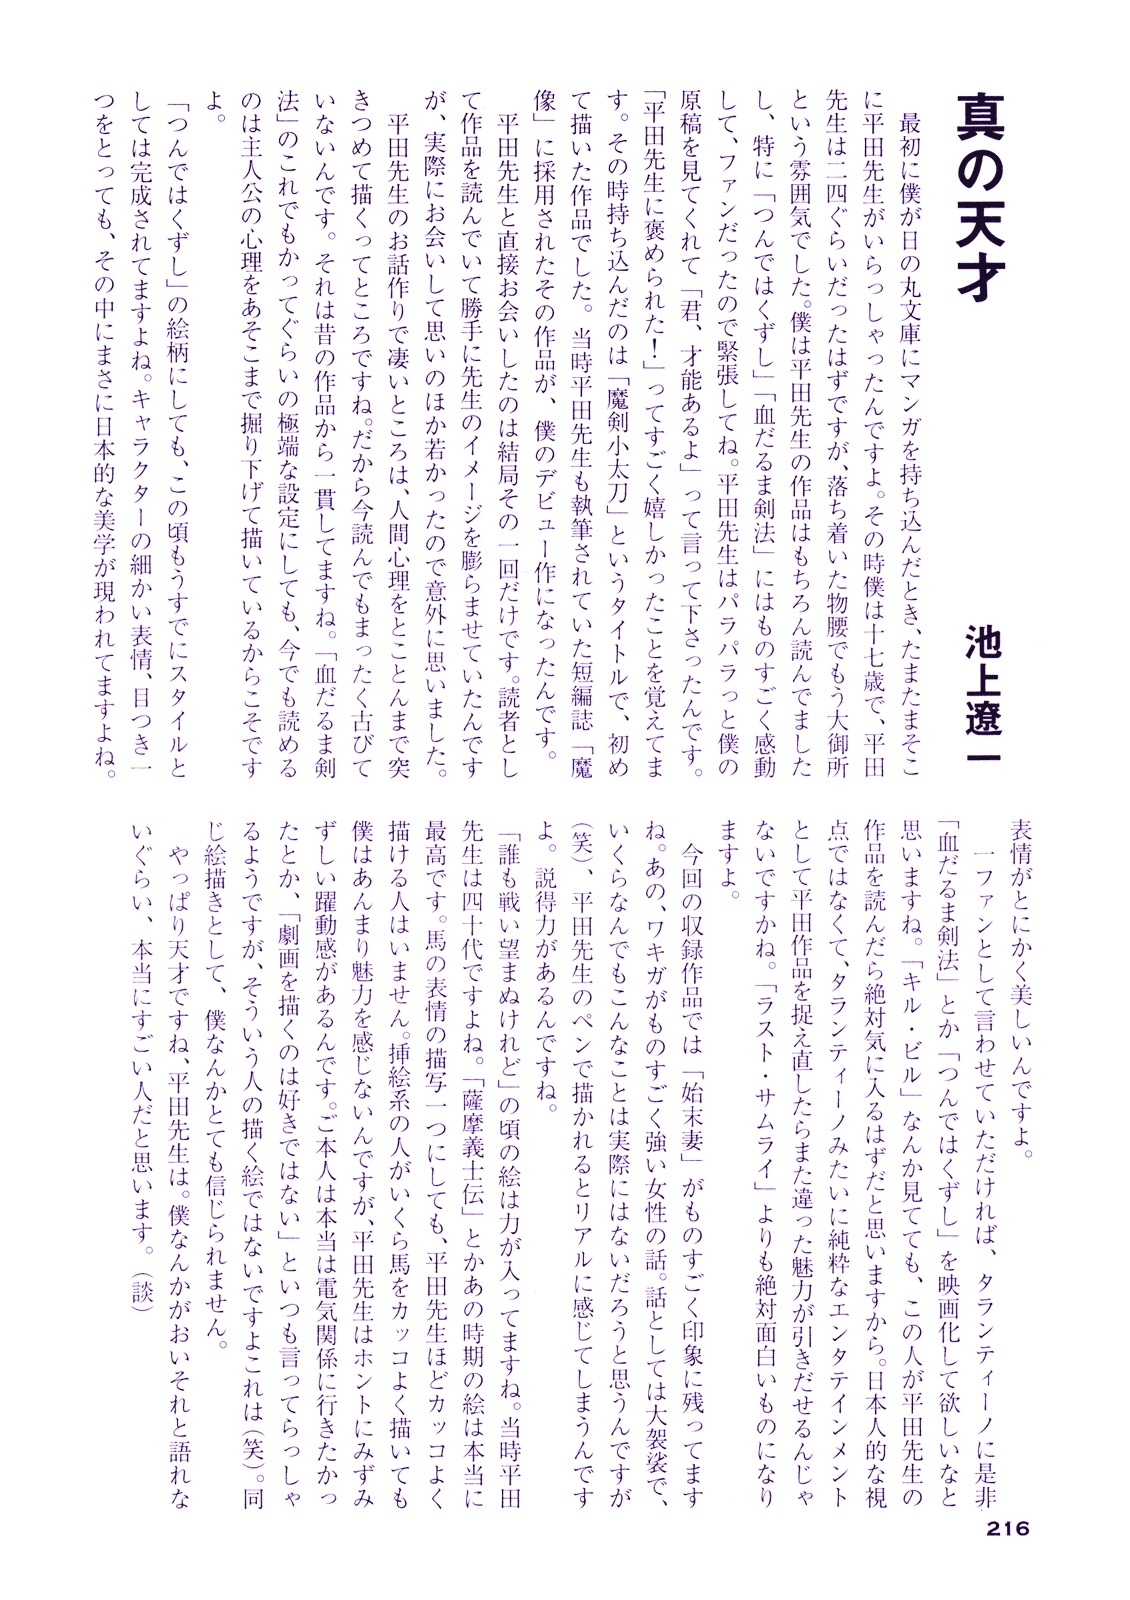 真の天才
池上遼一
最初に僕が日の丸文庫にマンガを持ち込んだとき、たまたまそこ
に平田先生がいらっしゃったんですよ。その時僕は十七歳で、平田
先生は二四ぐらいだったはずですが、落ち着いた物腰でもう大御所
という雰囲気でした。僕は平田先生の作品はもちろん読んでました
し、特に「つんではくずし」「血だるま剣法」にはものすごく感動
して、ファンだったので緊張してね。平田先生はパラパラっと僕の
原稿を見てくれて「君、才能あるよ」って言って下さったんです。
「平田先生に褒められた！」ってすごく嬉しかったことを覚えてま
す。その時持ち込んだのは「魔剣小太刀」というタイトルで、初め
て描いた作品でした。当時平田先生も執筆されていた短編誌「魔
像」に採用されたその作品が、僕のデビュー作になったんです。
平田先生と直接お会いしたのは結局その一回だけです。読者とし
て作品を読んでいて勝手に先生のイメージを膨らませていたんです
が、実際にお会いして思いのほか若かったので意外に思いました。
平田先生のお話作りで凄いところは、人間心理をとことんまで突
きつめて描くってところですね。だから今読んでもまったく古びて
いないんです。それは昔の作品から一貫してますね。「血だるま剣
法」のこれでもかってぐらいの極端な設定にしても、今でも読める
のは主人公の心理をあそこまで掘り下げて描いているからこそです
よ。
「つんではくずし」の絵柄にしても、この頃もうすでにスタイルと
しては完成されてますよね。キャラクターの細かい表情、目つき一
つをとっても、その中にまさに日本的な美学が現われてますよね。
表情がとにかく美しいんですよ。
一ファンとして言わせていただければ、タランティーノに是非
「血だるま剣法」とか「つんではくずし」を映画化して欲しいなと
思いますね。「キル・ビル」なんか見てても、この人が平田先生の
作品を読んだら絶対気に入るはずだと思いますから。日本人的な視
点ではなくて、タランティーノみたいに純粋なエンタテインメント
として平田作品を捉え直したらまた違った魅力が引きだせるんじゃ
ないですかね。「ラスト・サムライ」よりも絶対面白いものになり
ますよ。
今回の収録作品では「始末妻」がものすごく印象に残ってます
ね。あの、ワキガがものすごく強い女性の話。話としては大袈裟で、
いくらなんでもこんなことは実際にはないだろうと思うんですが
（笑）、平田先生のペンで描かれるとリアルに感じてしまうんです
よ。説得力があるんですね。
「誰も戦い望まぬけれど」の頃の絵は力が入ってますね。当時平田
先生は四十代ですよね。「薩摩義士伝」とかあの時期の絵は本当に
最高です。馬の表情の描写一つにしても、平田先生ほどカッコよく
描ける人はいません。挿絵系の人がいくら馬をカッコよく描いても
僕はあんまり魅力を感じないんですが、平田先生はホントにみずみ
ずしい躍動感があるんです。ご本人は本当は電気関係に行きたかっ
たとか、「劇画を描くのは好きではない」といつも言ってらっしゃ
るようですが、そういう人の描く絵ではないですよこれは（笑）。同
じ絵描きとして、僕なんかとても信じられません。
やっぱり天才ですね、平田先生は。僕なんかがおいそれと語れな
いぐらい、本当にすごい人だと思います。（談）
216